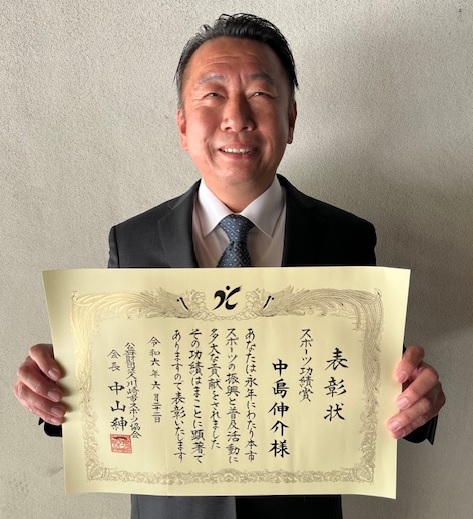 表彰状
スポーツ功績賞
中島伸介様
あなたは永年にわたり本市
スポーツの振興と普及活動に
多大な貢献をされました
その功績はまことに顕著で
ありますので表彰いたします
令和六年六月二十二日
公益財団法人川崎市スポーツ協会
会長 中山紳